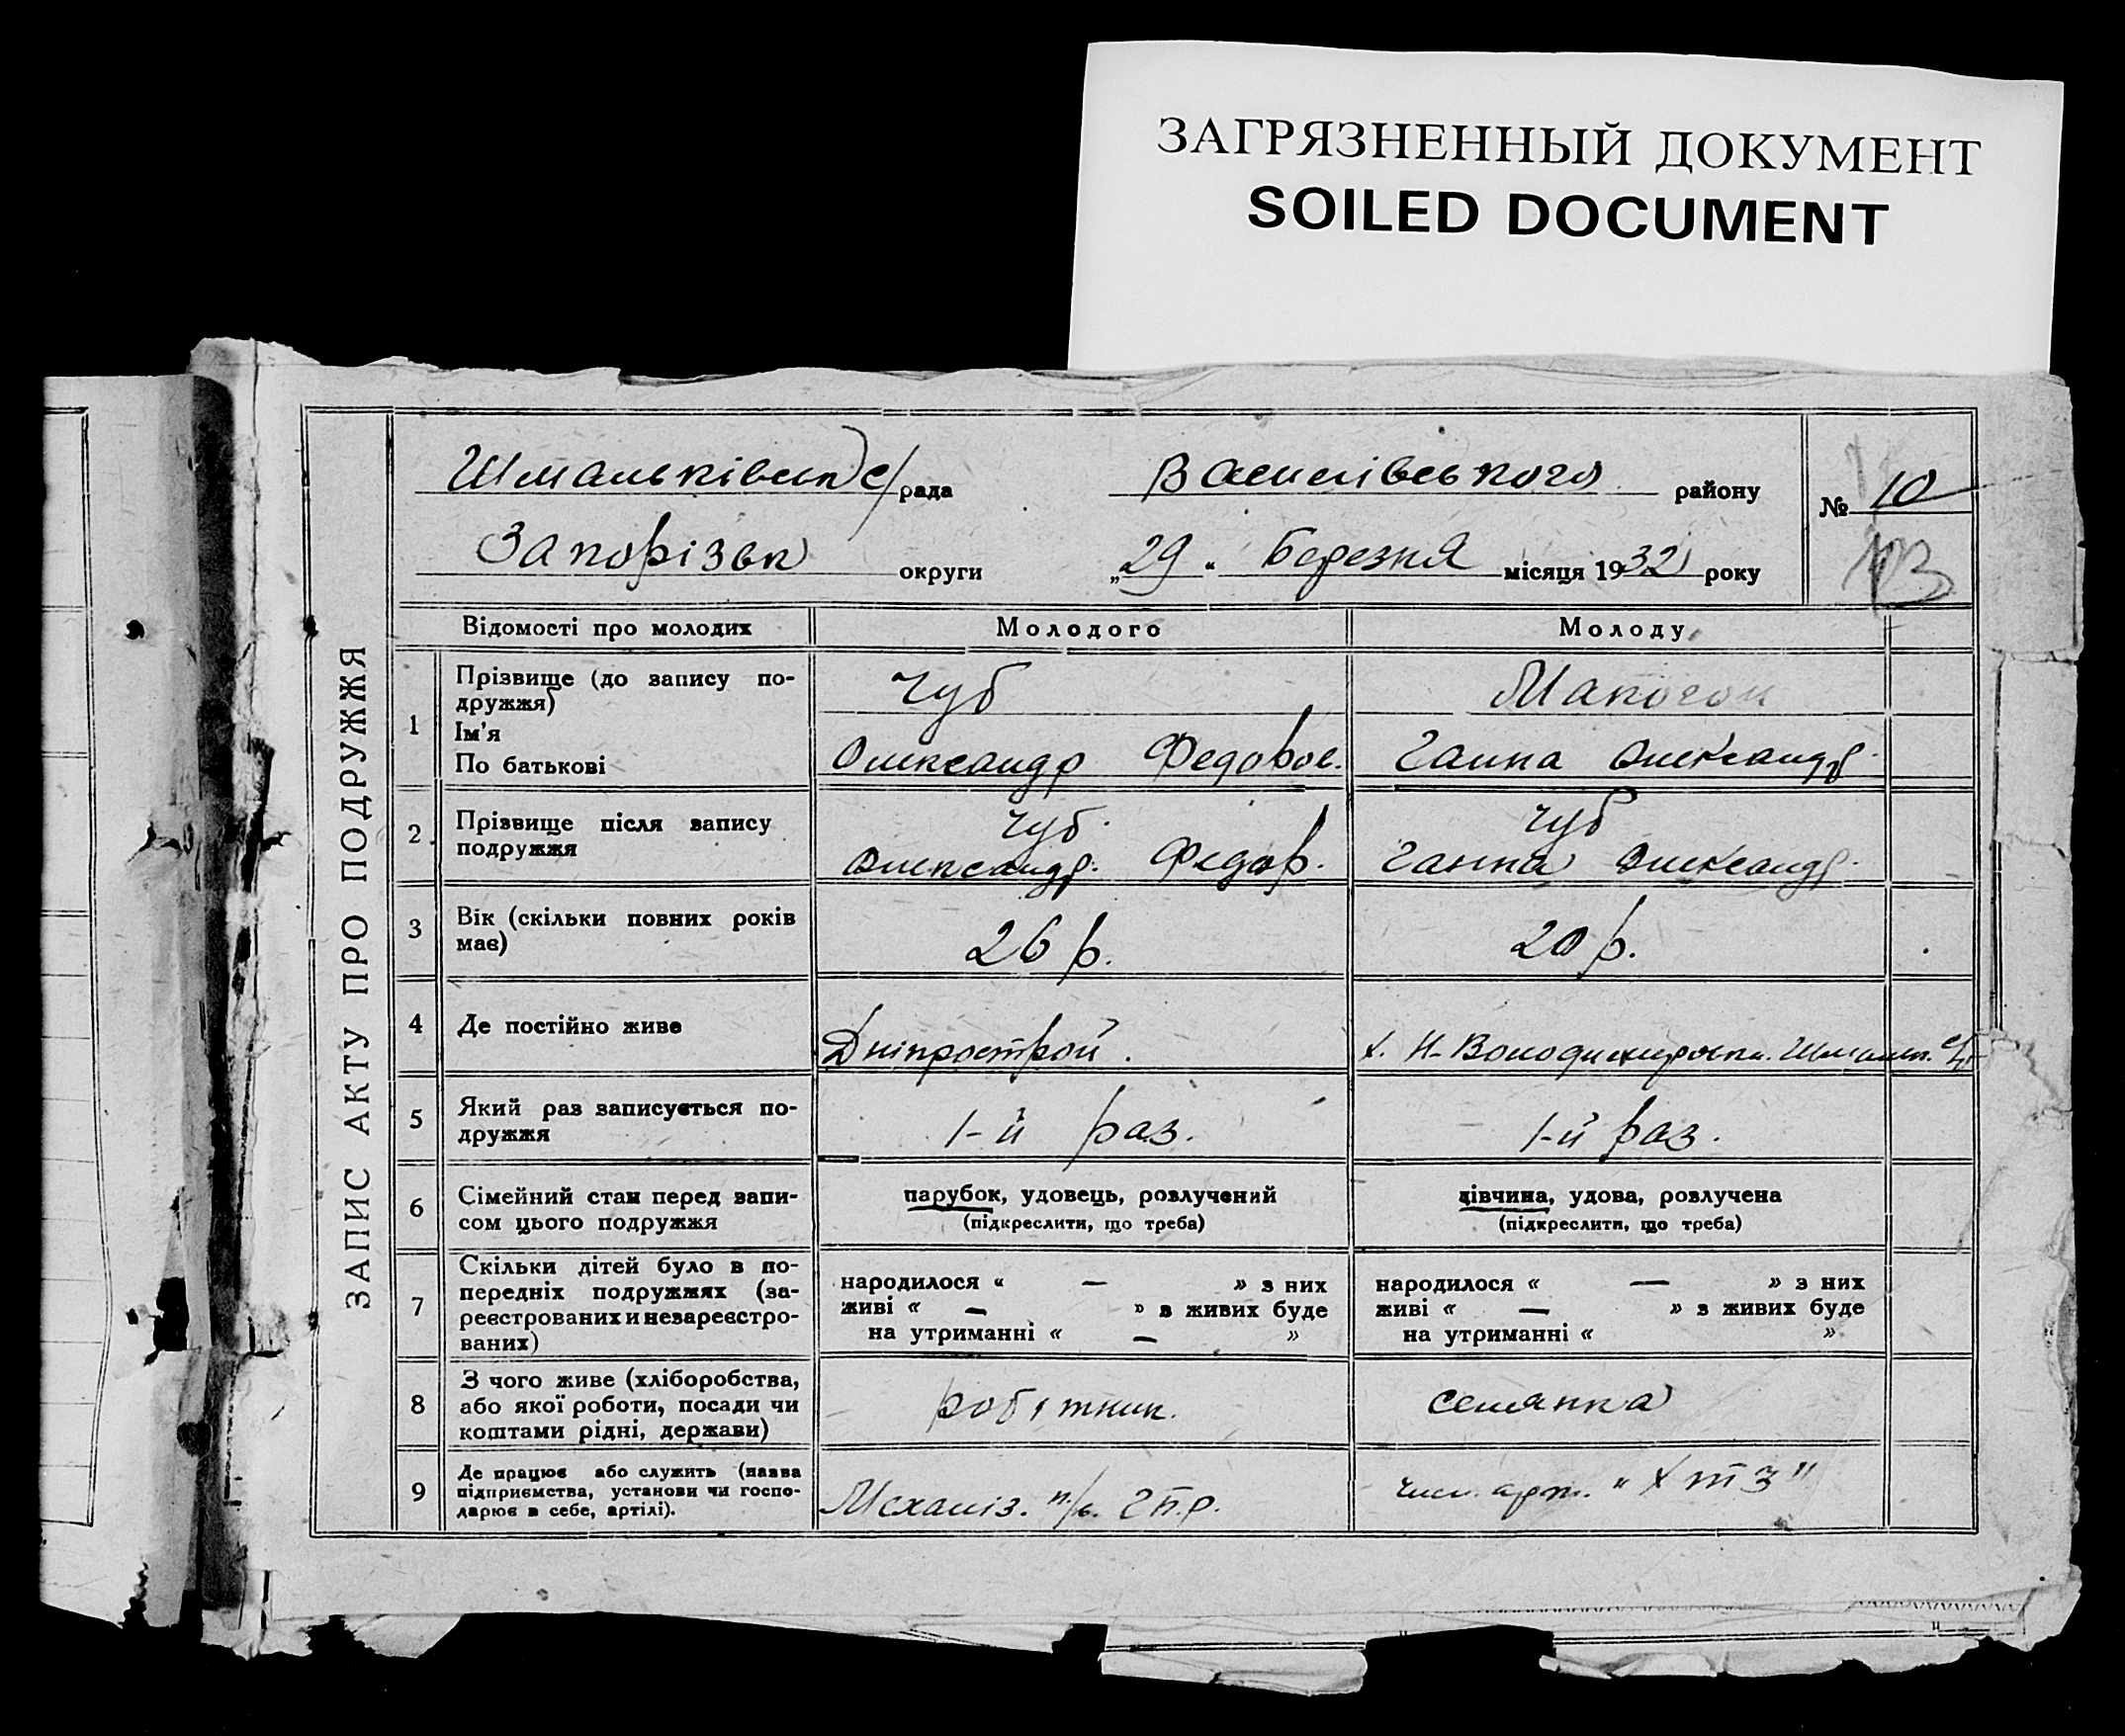 ЗАГРЯЗНЕННЫЙ ДОКУМЕНТ
SOILED DOCUMENT
ЗАПИС АКТУ ПРО ПОДРУЖЖЯ
Шмальківськ с/рада
Василівського району
№ 10
Запорізьк округи
„29“ Березня місяця 1932 року
Відомості про молодих
Молодого
Молоду
1
Прізвище (до запису по-
дружжя)
Ім'я
По батькові
Чуб
Олександр Федоров.
Макогон
Ганна Олександр.
2
Прізвище після запису
подружжя
Чуб
Олександр. Федор.
Чуб
Ганна Олександр.
3
Вік (скільки повних років
має)
26 р.
20 р.
4
Де постійно живе
Дніпрострой.
х. Н-Володимировка. Шмальк. с/р
5
Який раз записується по-
дружжя
1-й раз.
1-й раз.
6
Сімейний стан перед запи-
сом цього подружжя
парубок, удовець, розлучений
(підкреслити, що треба)
дівчина, удова, розлучена
(підкреслити, що треба)
7
Скільки дітей було в по-
передніх подружжях (за-
реєстрованих и незареєстро-
ваних)
народилося « — » з них
живі « — » в живих буде
на утриманні « — »
народилося « — » з них
живі « — » з живих буде
на утриманні « »
8
З чого живе (хліборобства,
або якої роботи, посади чи
коштами рідні, держави)
робітник.
селянка
9
Де працює або служить (назва
підприємства, установи чи госпо-
дарює в себе, артілі).
Механіз.
арт. „ХТЗ"